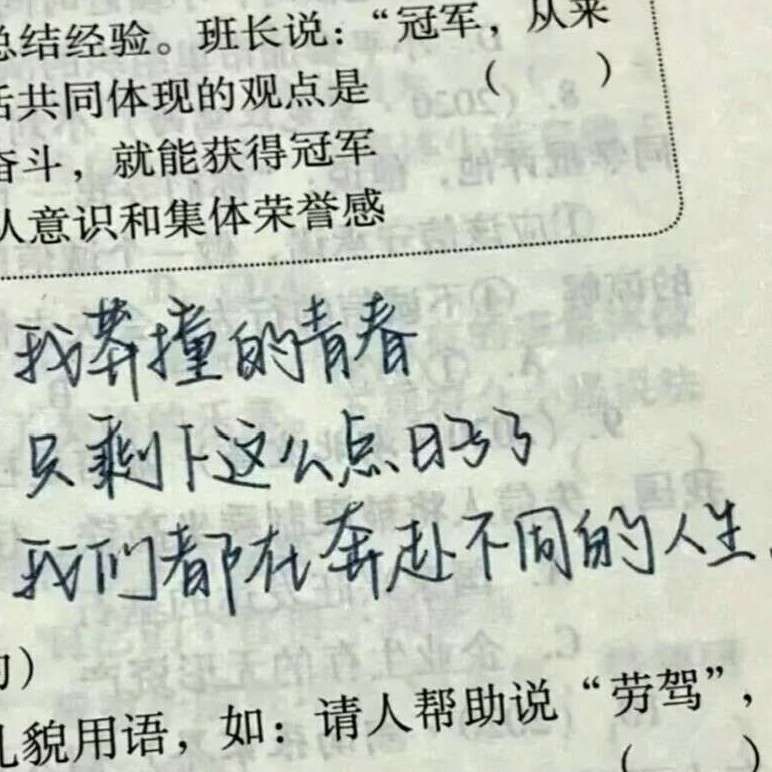 总结经验。班长说：“冠军，从来
话共同体现的观点是 （ ）
奋斗，就能获得冠军
队意识和集体荣誉感
我莽撞的青春
只剩下这么点日子了
我们都在奔赴不同的人生.
）
礼貌用语，如：请人帮助说“劳驾”，
（ ）